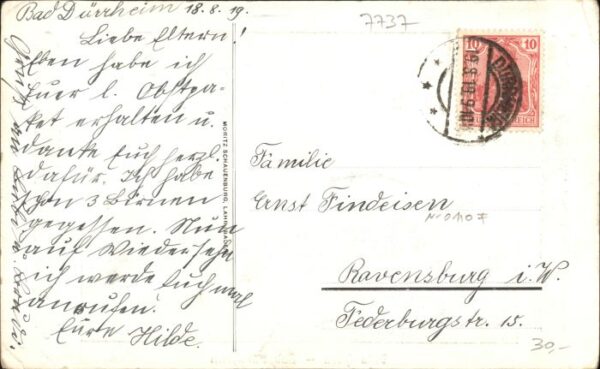 Bad Dürrheim 18.8.19.
7737
Liebe Eltern!
Eben habe ich
Euer l. Obstpa-
ket erhalten u.
danke Euch herzl.
dafür. Ich habe
schon 3 Birnen
gegessen. Nun
auf Wiedersehn
ich werde Euch mal
anrufen.
Eure Hilde.
MORITZ SCHAUENBURG, LAHR
10 10
REICH
Familie
Ernst Findeisen
Ravensburg i. W.
Federburgstr. 15.
30,-